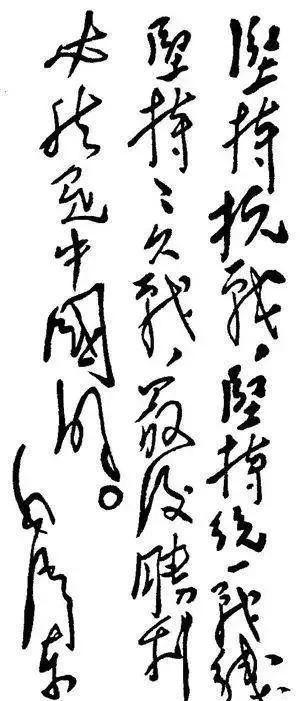 堅持抗戰，堅持統一戰線
堅持〻久戰，最後勝利
必然是中國的。
毛澤東